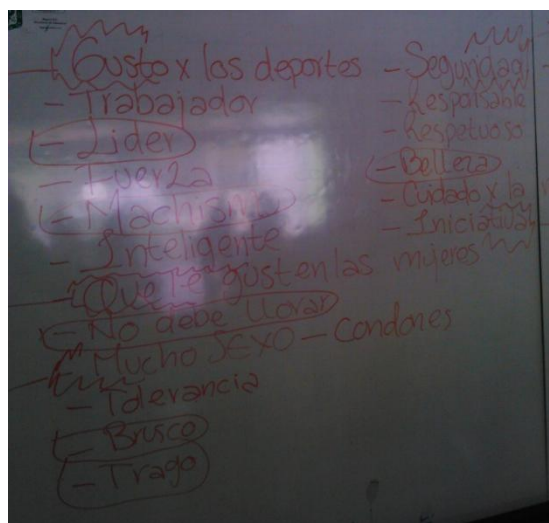 - Gusto x los deportes
- Trabajador
- Lider
- Fuerza
- Machismo
- Inteligente
- Que le gusten las mujeres
- No debe llorar
- Mucho SEXO - Condones
- Tolerancia
- Brusco
- Trago
- Seguridad
- Responsable
- Respetuoso
- Belleza
- Cuidado x la
- Iniciativa